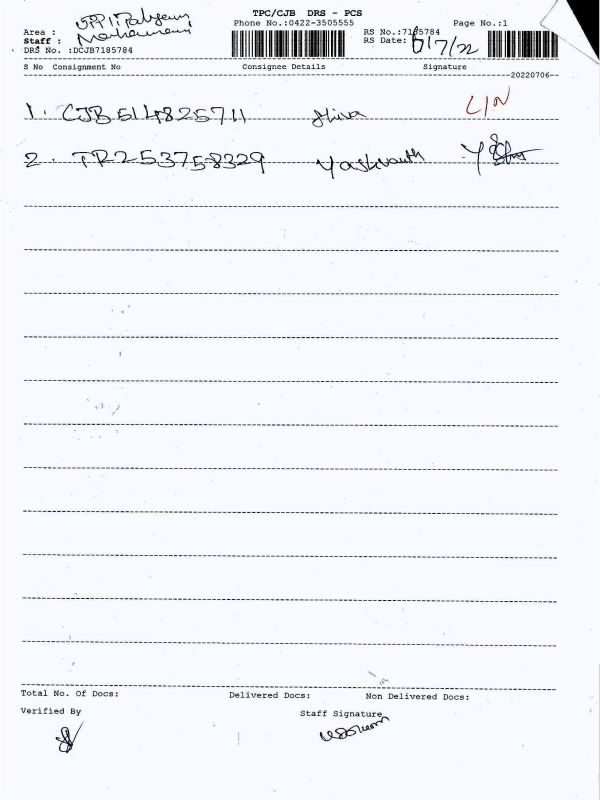 TPC/CJB DRS - PCS
Area :
Phone No.:0422-3505555 Page No.:1
Staff :
RS No.:7185784
DRS No. :DCJB7185784
RS Date: 6/7/22
S No Consignment No Consignee Details Signature
20220706
1. CJB514825711 Shiva L/N
2. TR253758329 Yashvanth
Total No. Of Docs: Delivered Docs: Non Delivered Docs:
Verified By Staff Signature